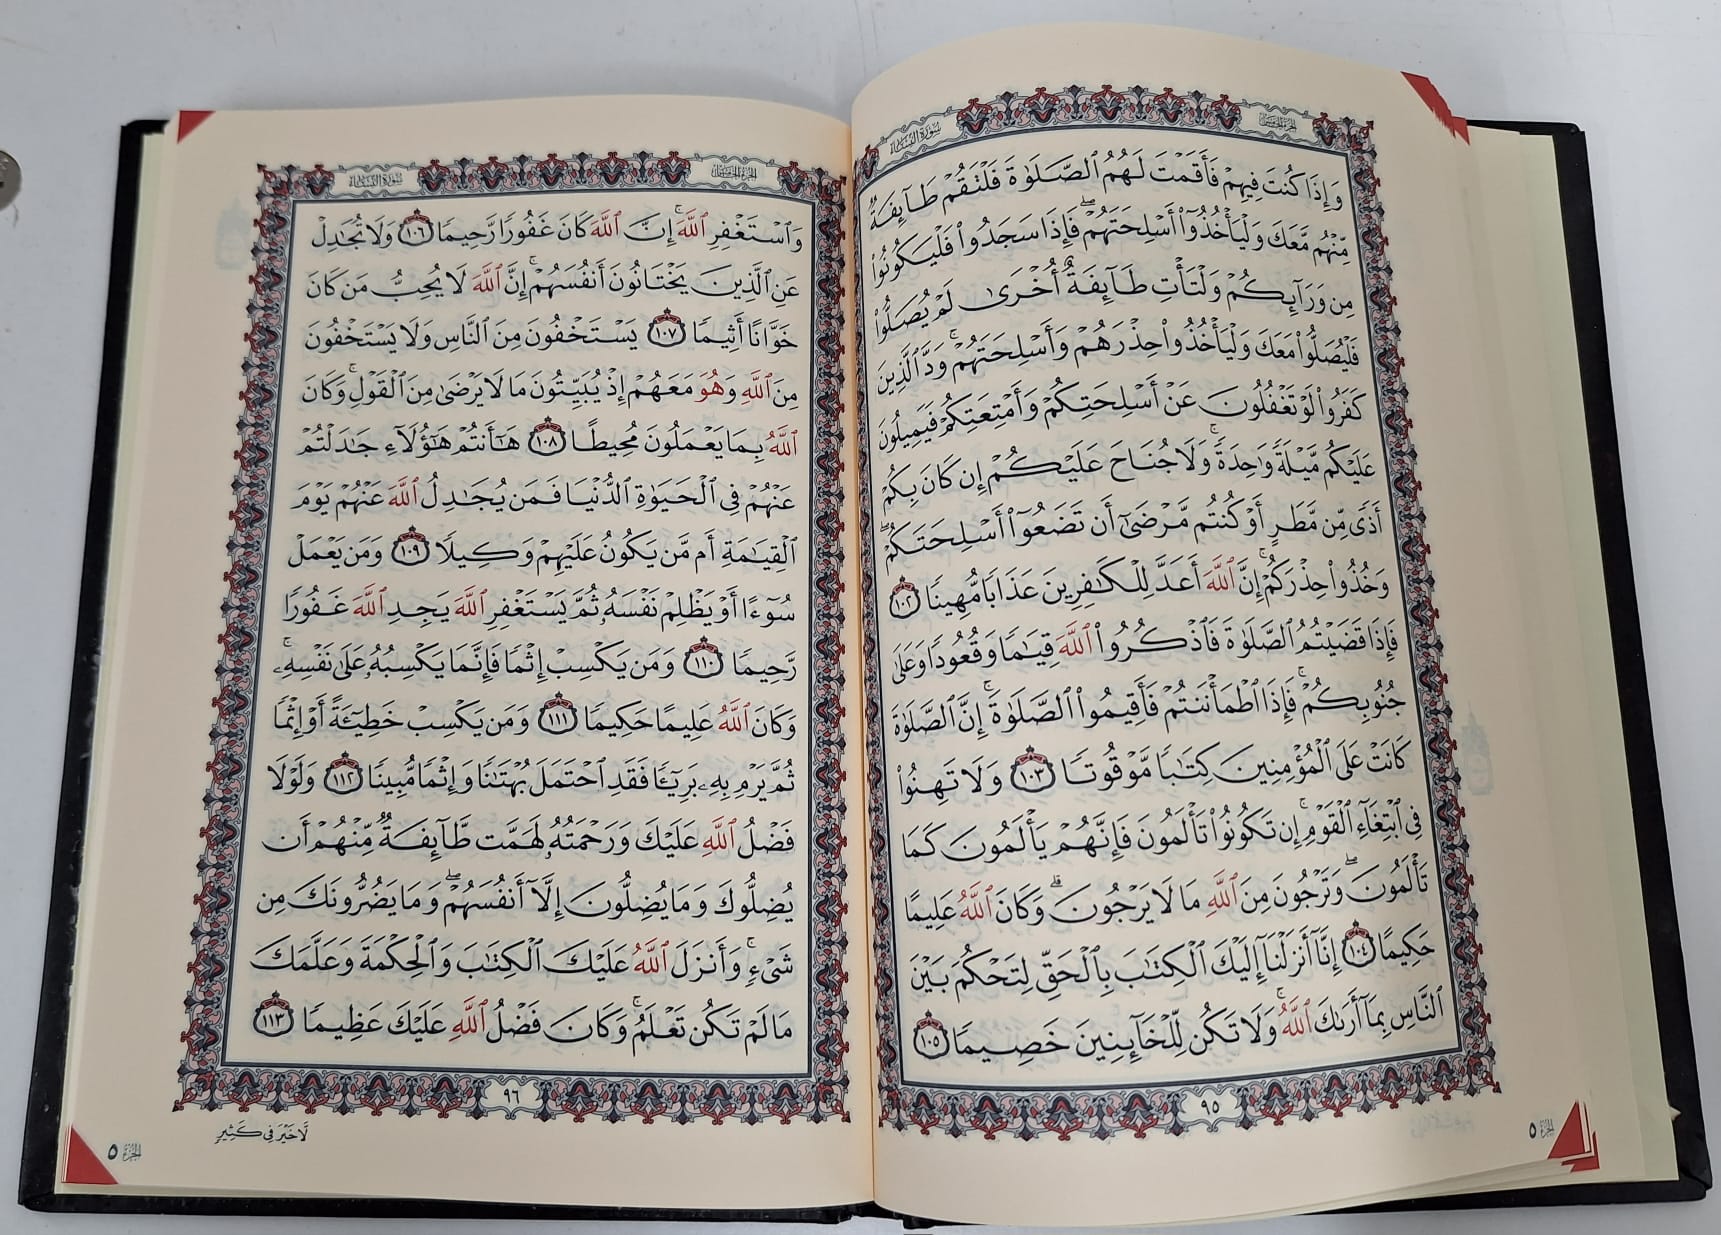 سورة النساء
الجزء الخامس
وَإِذَا كُنتَ فِيهِمْ فَأَقَمْتَ لَهُمُ ٱلصَّلَوٰةَ فَلْتَقُمْ طَآئِفَةٌ
مِّنْهُم مَّعَكَ وَلْيَأْخُذُوٓا۟ أَسْلِحَتَهُمْ ۖ فَإِذَا سَجَدُوا۟ فَلْيَكُونُوا۟
مِن وَرَآئِكُمْ وَلْتَأْتِ طَآئِفَةٌ أُخْرَىٰ لَمْ يُصَلُّوا۟
فَلْيُصَلُّوا۟ مَعَكَ وَلْيَأْخُذُوا۟ حِذْرَهُمْ وَأَسْلِحَتَهُمْ ۗ وَدَّ ٱلَّذِينَ
كَفَرُوا۟ لَوْ تَغْفُلُونَ عَنْ أَسْلِحَتِكُمْ وَأَمْتِعَتِكُمْ فَيَمِيلُونَ
عَلَيْكُم مَّيْلَةً وَٰحِدَةً ۚ وَلَا جُنَاحَ عَلَيْكُمْ إِن كَانَ بِكُمْ
أَذًى مِّن مَّطَرٍ أَوْ كُنتُم مَّرْضَىٰٓ أَن تَضَعُوٓا۟ أَسْلِحَتَكُمْ ۖ
وَخُذُوا۟ حِذْرَكُمْ ۗ إِنَّ ٱللَّهَ أَعَدَّ لِلْكَٰفِرِينَ عَذَابًا مُّهِينًا ١٠٢
فَإِذَا قَضَيْتُمُ ٱلصَّلَوٰةَ فَٱذْكُرُوا۟ ٱللَّهَ قِيَٰمًا وَقُعُودًا وَعَلَىٰ
جُنُوبِكُمْ ۚ فَإِذَا ٱطْمَأْنَنتُمْ فَأَقِيمُوا۟ ٱلصَّلَوٰةَ ۚ إِنَّ ٱلصَّلَوٰةَ
كَانَتْ عَلَى ٱلْمُؤْمِنِينَ كِتَٰبًا مَّوْقُوتًا ١٠٣ وَلَا تَهِنُوا۟
فِى ٱبْتِغَآءِ ٱلْقَوْمِ ۖ إِن تَكُونُوا۟ تَأْلَمُونَ فَإِنَّهُمْ يَأْلَمُونَ كَمَا
تَأْلَمُونَ ۖ وَتَرْجُونَ مِنَ ٱللَّهِ مَا لَا يَرْجُونَ ۗ وَكَانَ ٱللَّهُ عَلِيمًا
حَكِيمًا ١٠٤ إِنَّآ أَنزَلْنَآ إِلَيْكَ ٱلْكِتَٰبَ بِٱلْحَقِّ لِتَحْكُمَ بَيْنَ
ٱلنَّاسِ بِمَآ أَرَىٰكَ ٱللَّهُ ۚ وَلَا تَكُن لِّلْخَآئِنِينَ خَصِيمًا ١٠٥
٩٥
الجزء ٥
سورة النساء
الجزء الخامس
وَٱسْتَغْفِرِ ٱللَّهَ ۖ إِنَّ ٱللَّهَ كَانَ غَفُورًا رَّحِيمًا ١٠٦ وَلَا تُجَٰدِلْ
عَنِ ٱلَّذِينَ يَخْتَانُونَ أَنفُسَهُمْ ۚ إِنَّ ٱللَّهَ لَا يُحِبُّ مَن كَانَ
خَوَّانًا أَثِيمًا ١٠٧ يَسْتَخْفُونَ مِنَ ٱلنَّاسِ وَلَا يَسْتَخْفُونَ
مِنَ ٱللَّهِ وَهُوَ مَعَهُمْ إِذْ يُبَيِّتُونَ مَا لَا يَرْضَىٰ مِنَ ٱلْقَوْلِ ۚ وَكَانَ
ٱللَّهُ بِمَا يَعْمَلُونَ مُحِيطًا ١٠٨ هَٰٓأَنتُمْ هَٰٓؤُلَآءِ جَٰدَلْتُمْ
عَنْهُمْ فِى ٱلْحَيَوٰةِ ٱلدُّنْيَا فَمَن يُجَٰدِلُ ٱللَّهَ عَنْهُمْ يَوْمَ
ٱلْقِيَٰمَةِ أَم مَّن يَكُونُ عَلَيْهِمْ وَكِيلًا ١٠٩ وَمَن يَعْمَلْ
سُوٓءًا أَوْ يَظْلِمْ نَفْسَهُۥ ثُمَّ يَسْتَغْفِرِ ٱللَّهَ يَجِدِ ٱللَّهَ غَفُورًا
رَّحِيمًا ١١٠ وَمَن يَكْسِبْ إِثْمًا فَإِنَّمَا يَكْسِبُهُۥ عَلَىٰ نَفْسِهِۦ ۚ
وَكَانَ ٱللَّهُ عَلِيمًا حَكِيمًا ١١١ وَمَن يَكْسِبْ خَطِيٓـَٔةً أَوْ إِثْمًا
ثُمَّ يَرْمِ بِهِۦ بَرِيٓـًٔا فَقَدِ ٱحْتَمَلَ بُهْتَٰنًا وَإِثْمًا مُّبِينًا ١١٢ وَلَوْلَا
فَضْلُ ٱللَّهِ عَلَيْكَ وَرَحْمَتُهُۥ لَهَمَّت طَّآئِفَةٌ مِّنْهُمْ أَن
يُضِلُّوكَ وَمَا يُضِلُّونَ إِلَّآ أَنفُسَهُمْ ۖ وَمَا يَضُرُّونَكَ مِن
شَىْءٍ ۚ وَأَنزَلَ ٱللَّهُ عَلَيْكَ ٱلْكِتَٰبَ وَٱلْحِكْمَةَ وَعَلَّمَكَ
مَا لَمْ تَكُن تَعْلَمُ ۚ وَكَانَ فَضْلُ ٱللَّهِ عَلَيْكَ عَظِيمًا ١١٣
٩٦
لَّا خَيْرَ فِى كَثِيرٍ
الجزء ٥